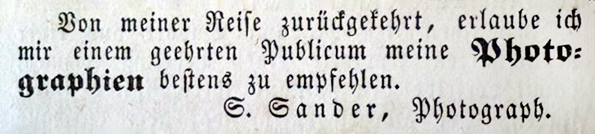 Von meiner Reiſe zurückgekehrt, erlaube ich
mir einem geehrten Publicum meine Photo⸗
graphien beſtens zu empfehlen.
S. Sander, Photograph.